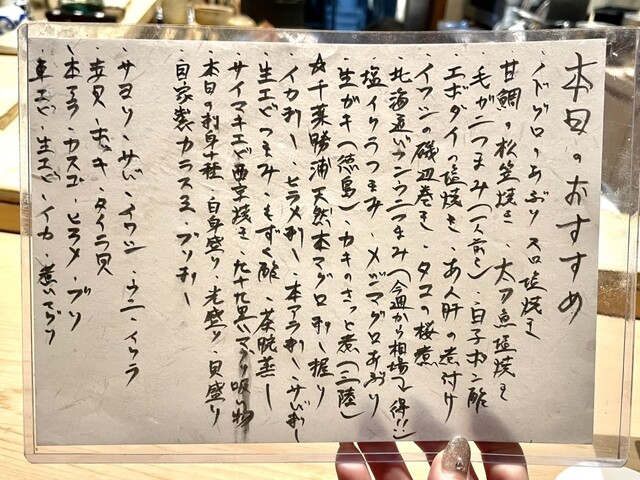 本日のおすすめ
・ノドグロのあぶり 又ハ塩焼き
・甘鯛の松笠焼き ・太刀魚塩焼き
・毛がにつまみ(一人前も) ・白子ポン酢
・エボダイの塩焼き ・あん肝の煮付け
・イワシの磯辺巻き ・タコの桜煮
・北海道いウニつまみ(今週から相場で得!!)
・塩イクラつまみ ・メジマグロあぶり
・生ガキ(徳島) カキのさっと煮(三陸)
☆千葉勝浦 天然本マグロ刺し 握り
・イカ刺し ・ヒラメ刺し ・本アラ刺し ・サバ刺し
・生エビつまみ ・もずく酢 ・茶碗蒸し
・サイマキエビ西京焼き ・九十九里ハマグリ吸い物
・本日の刺身十種 白身盛り 光盛り 貝盛り
自家製カラスミ ブリ刺し
・サヨリ ・サバ ・イワシ ・ウニ ・イクラ
・赤貝 ・ホッキ ・タイラ貝
・本アラ ・カスゴ ・ヒラメ ・ブリ
・車エビ ・生エビ ・イカ ・煮ハマグリ